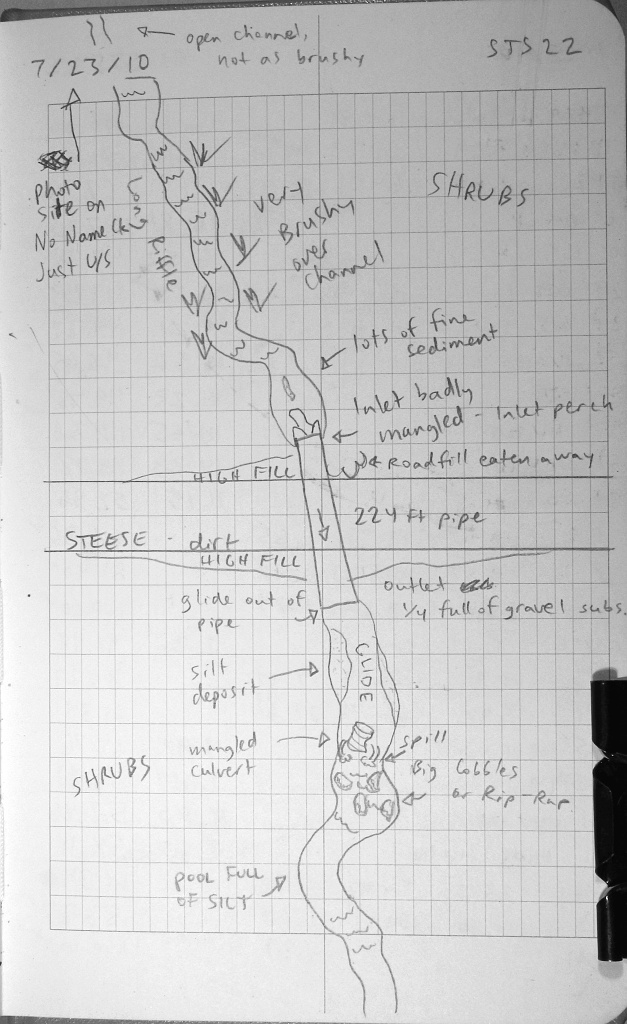 open channel,
not as brushy
STS 22
7/23/10
photo
site on
No Name Ck
Just U/S
Long Riffle
very
Brushy
over
channel
SHRUBS
lots of fine
sediment
Inlet badly
mangled - Inlet perch
Roadfill eaten away
HIGH FILL
224 ft pipe
STEESE - dirt
HIGH FILL
glide out of
pipe
outlet
1/4 full of gravel subs.
silt
deposit
GLIDE
mangled
culvert
spill
Big Cobbles
or Rip-Rap
SHRUBS
POOL FULL
OF SILT